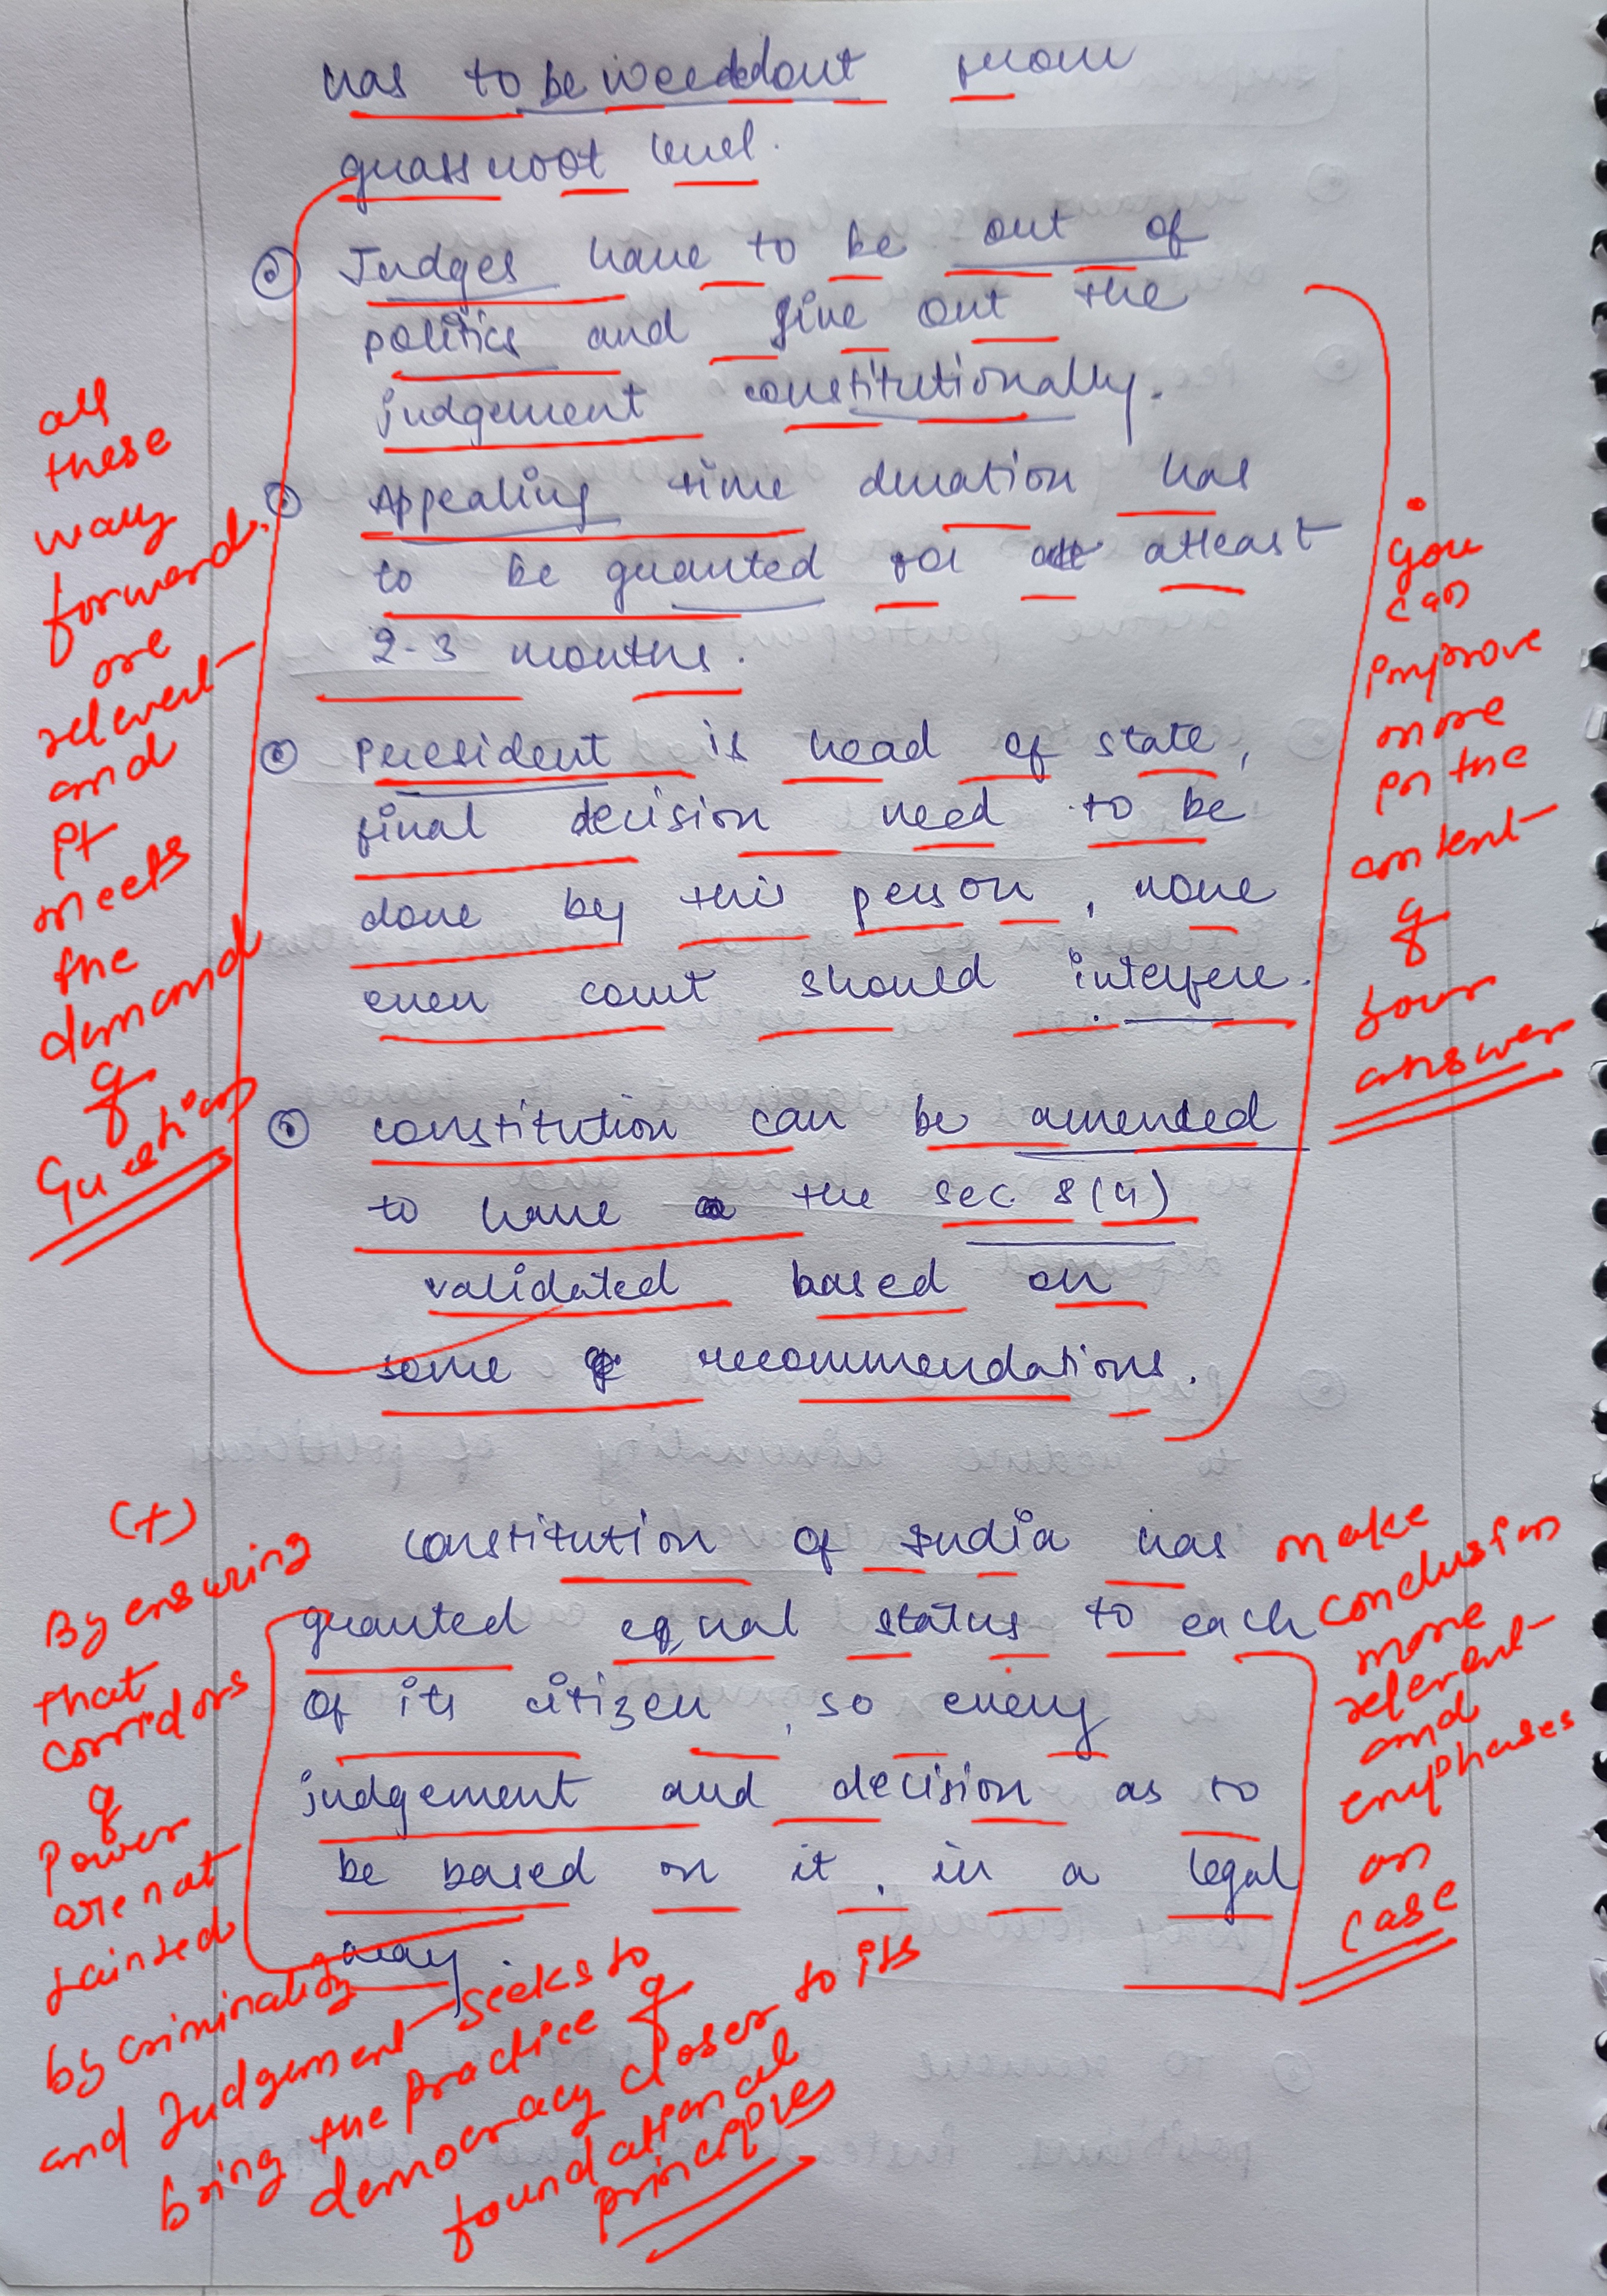 has to be weeded out from
grassroot level.
Judges have to be out of
politics and give out the
judgement constitutionally.
Appealing time duration has
to be granted for atleast
2-3 months.
President is head of state,
final decision need to be
done by this person, none
even court should interfere.
constitution can be amended
to have the sec 8(4)
validated based on
some recommendations.
constitution of India has
granted equal status to each
of its citizen, so every
judgement and decision as to
be based on it, in a legal
way.
all
these
way
forward
are
relevent
and
it
meets
the
demand
of
Question
• you
can
improve
more
in the
content
of
your
answer
(+)
By ensuring
that
corridors
of
Power
are not
tainted
by criminality
and Judgement seeks to
bring the practice of
democracy closer to its
foundational
principles
make
conclusion
more
relevent
and
emphases
on
case